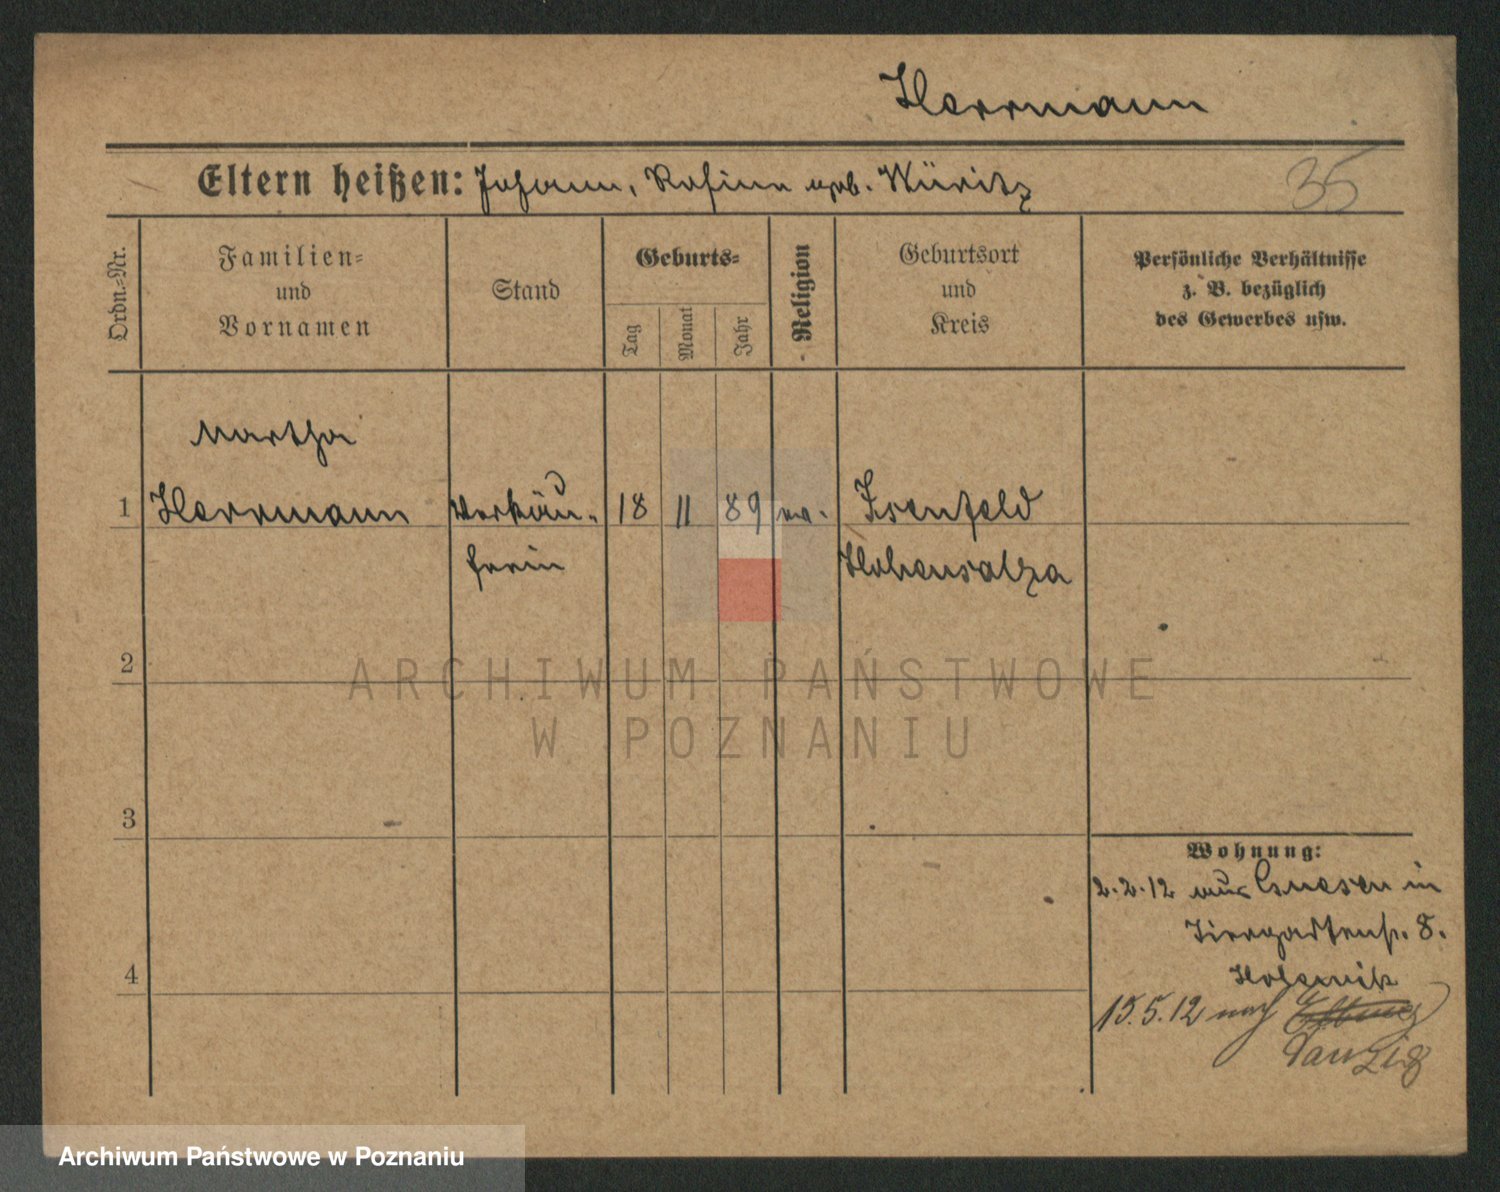 Herrmann
Eltern heißen: Johann, Rosine geb. Müritz
35
Ordn.-Nr.
Familien-
und
Vornamen
Stand
Geburts-
Tag
Monat
Jahr
Religion
Geburtsort
und
Kreis
Persönliche Verhältnisse
z. B. bezüglich
des Gewerbes usw.
Martha
1 Herrmann Verkäu- 18 11 89 ev. Isenfeld
ferin Hohensalza
2
ARCHIWUM PAŃSTWOWE
W POZNANIU
3
Wohnung:
2.2.12 aus Gnesen in
Tiergartenstr. 8.
4
15.5.12 nach Elbing
Danzig
Archiwum Państwowe w Poznaniu